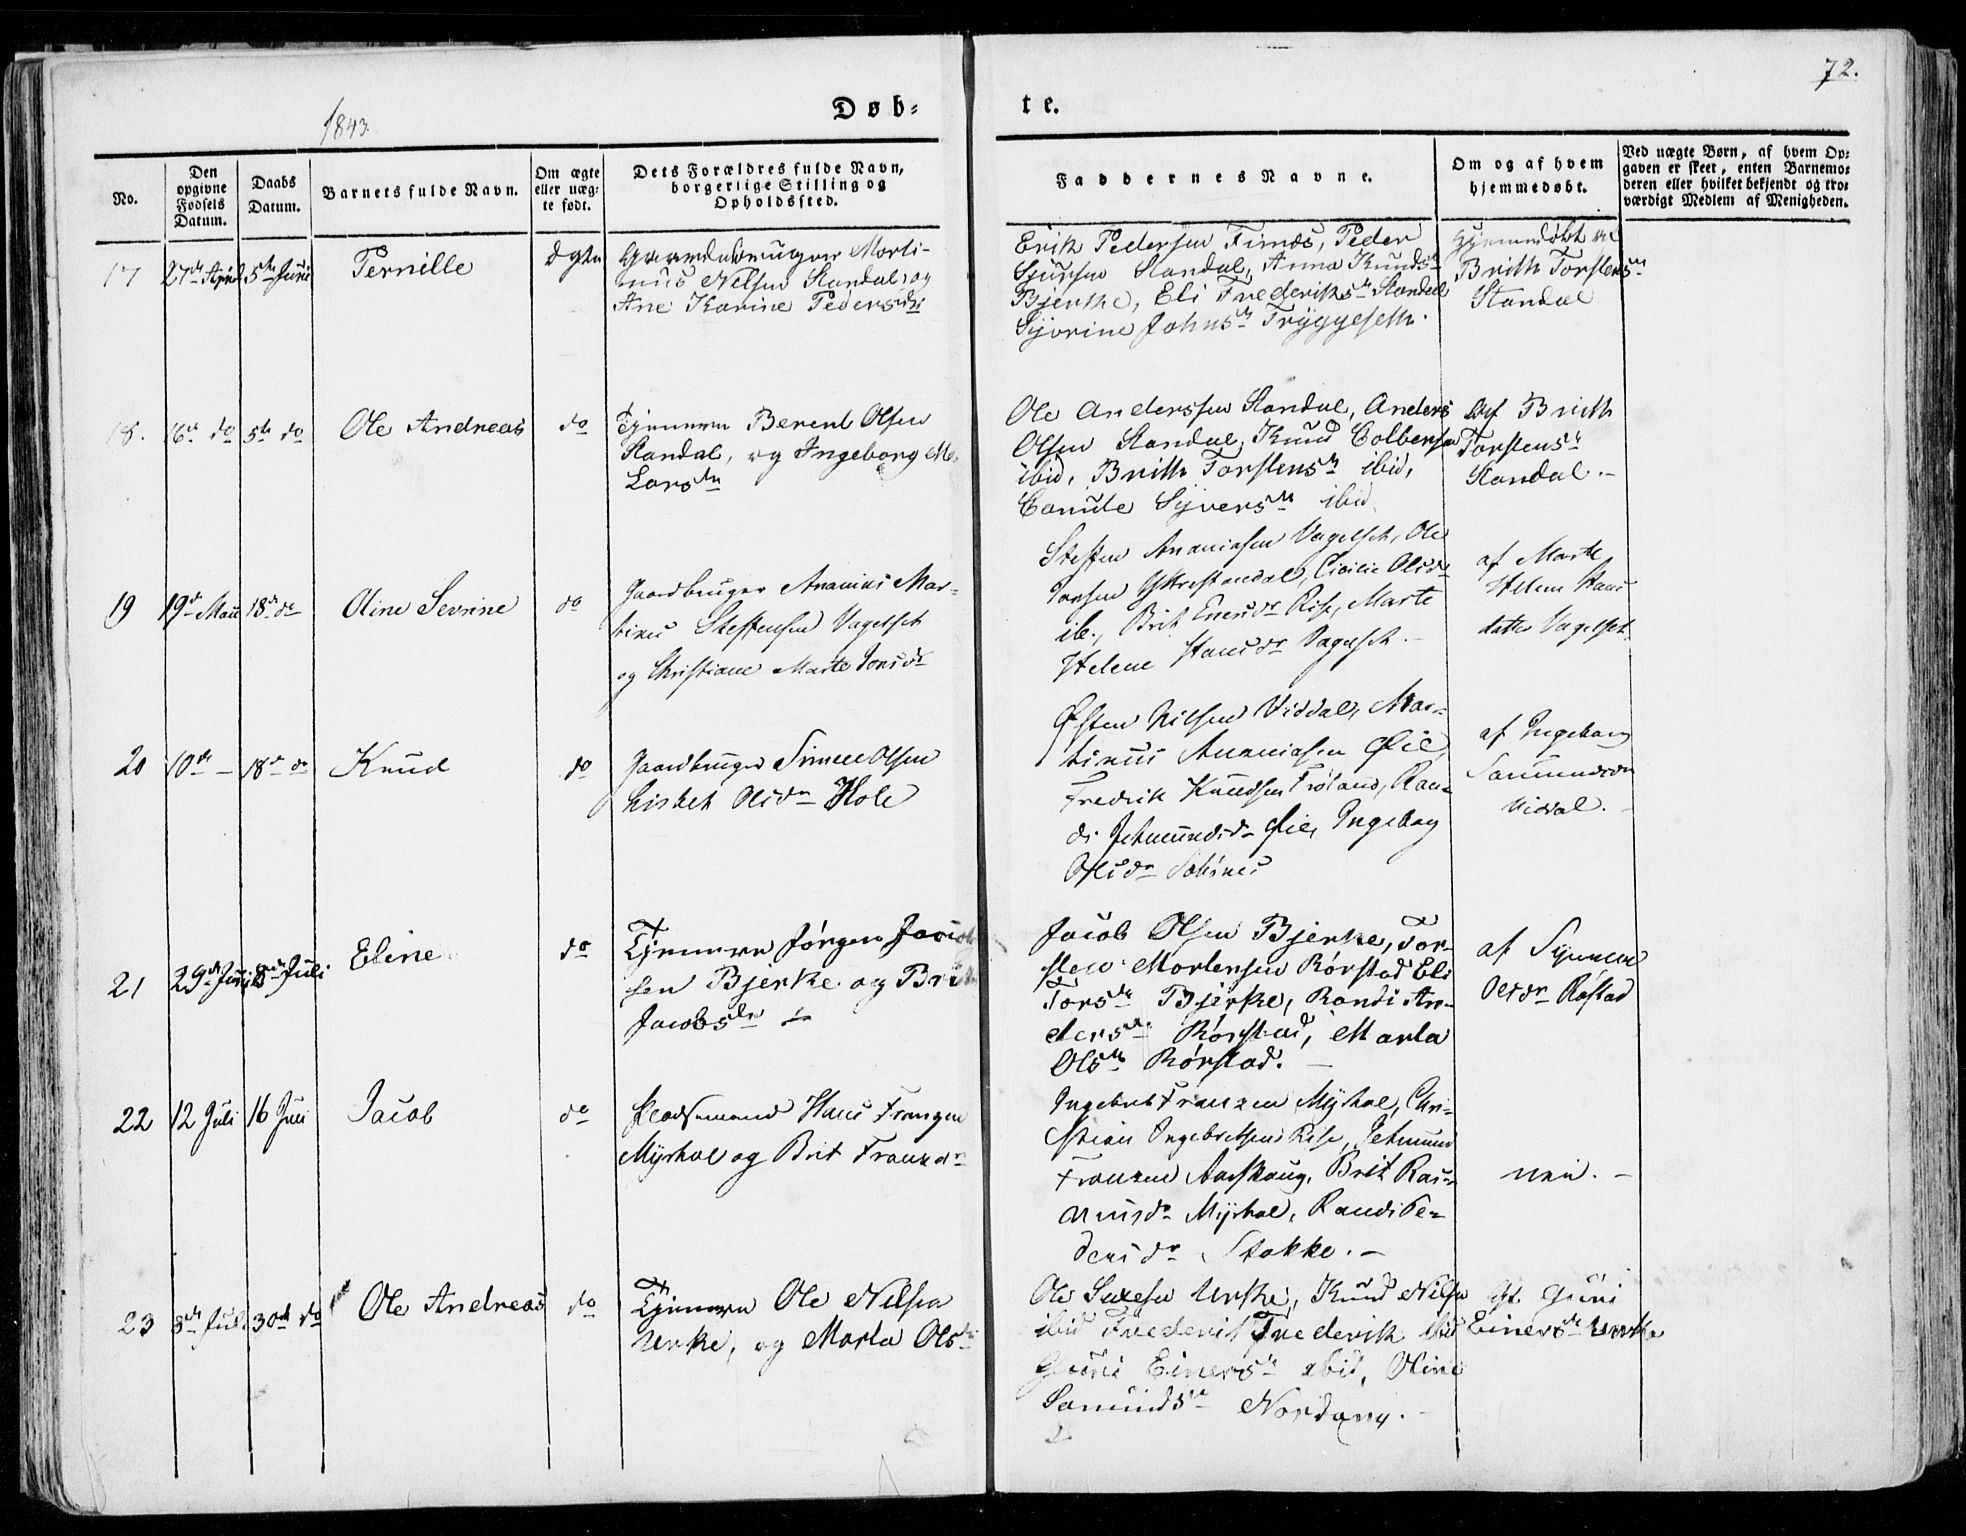 72.
1843.
Døb-
te.
No.
Den
opgivne
Fødsels
Datum.
Daabs
Datum.
Barnets fulde Navn.
Om ægte
eller uæg-
te født.
Dets Forældres fulde Navn,
borgerlige Stilling og
Opholdssted.
Faddernes Navne.
Om og af hvem
hjemmedøbt.
Ved uægte Børn, af hvem Op-
gaven er skeet, enten Barnemo-
deren eller hvilket bekjendt og tro-
værdigt Medlem af Menigheden.
17
27de April
5te Juni
Pernille
Ægte
Gaardbruger Morti-
nus Nelsen Standal, og
Ane Karine Pedersdr
Erik Pedersen Finnæs, Peder
Sjursen Standal, Anna Knudsdr
Bjerke, Eli Frederiksdr Standal
Syvrine Johnsdr Tryggeseth.
Hjemmedøbt af
Brith Torstensdr
Standal
18.
16de do
5te do
Ole Andreas
do
Tjenere Berent Olsen
Standal, og Ingeborg M.
Larsdtr
Ole Anderssen Standal, Anders
Olsen Standal, Knud Colbensen
ibid, Brith Torstensdr ibid,
Canute Syversdr ibid.
Af Brith
Torstensdr
Standal.-
19
19de Mai
18de do
Oline Sevrine
do
Gaardbruger Ananias Mar-
tinus Steffensen Vagelset
og Christiane Marte Jonsdr
Steffen Ananiasen Vagelset, Ole
Jonsen Yttrestandal, Cicilie Olsdr
ib., Brit Enersdr Rise, Marte
Helene Hansdr Vagelset.-
af Marte
Helene Hans
datter Vagelset.
20
10de -
18de do
Knud
do
Gaardbruger Simen Olsen
Lisbet Olsdr Hole
Østen Nilsen Viddal, Mar-
tinus Ananiasen Øie,
Fredrik Knudsen Frøland, Ran-
di Jetmundsdr Øie, Ingeborg
Olsdr Sæbønes
af Ingeborg
Samundsdr
Viddal.-
21
29de Juni
8de Juli
Eline
do
Tjenere Jørgen Jacob
sen Bjerke og Brith
Jacobsdtr
Jacob Olsen Bjerke, Tor-
sten Mortensen Rørstad Eli
Torsdr Bjerke, Randi An-
dersdr Rørstad, Marta
Olsdr Rørstad. -
af Synneve
Olsdr Røstad
22
12 Juli
16 Juli
Jacob
do
Pladsmand Hans Franzen
Myrhol og Brit Franzdr
Ingebrit Franzen Myrhol, Chri-
stian Ingebritsen Rise, Jetmund
Franzen Aarskaug, Brit Ras-
musdr Myrhol, Randi Pe-
dersdr Stokke. -
nei. -
23
8de Juli
30te do
Ole Andreas
do
Tjenere Ole Nelsen
Urke, og Marta Olsdr
Ole Saxesen Urke, Knud Nilsen
ibid Frederik Frederik ibid
Guri Einersdr ibid, Oline
Samundsdr Nordang. -
Af Guri
Einersdr Urke